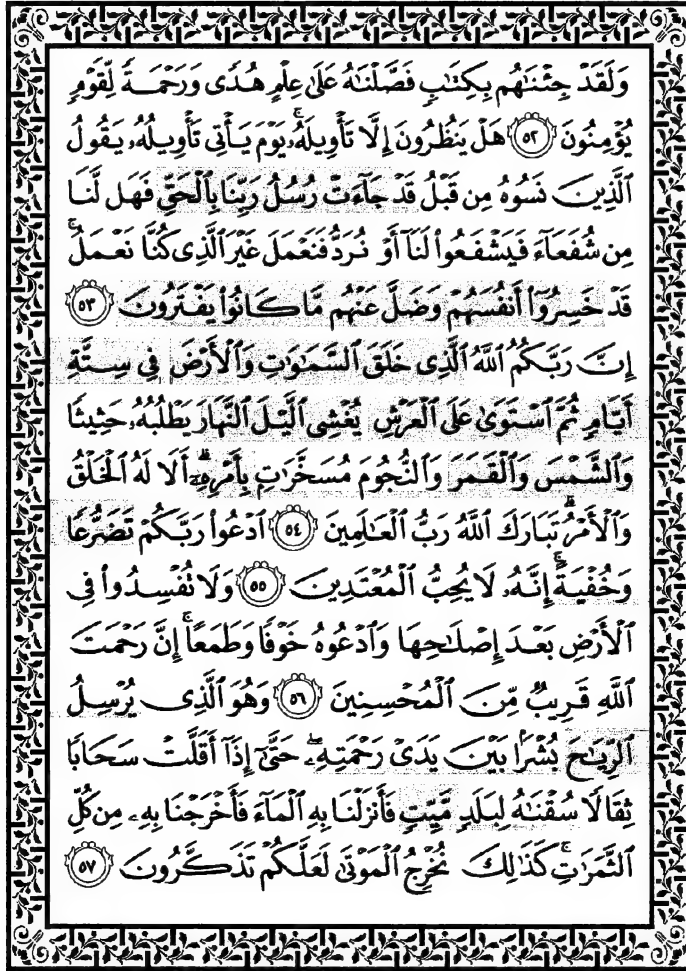 وَلَقَدْ جِئْنَٰهُم بِكِتَٰبٍ فَصَّلْنَٰهُ عَلَىٰ عِلْمٍ هُدًى وَرَحْمَةً لِّقَوْمٍ
يُؤْمِنُونَ ٥٢ هَلْ يَنظُرُونَ إِلَّا تَأْوِيلَهُۥۚ يَوْمَ يَأْتِى تَأْوِيلُهُۥ يَقُولُ
ٱلَّذِينَ نَسُوهُ مِن قَبْلُ قَدْ جَآءَتْ رُسُلُ رَبِّنَا بِٱلْحَقِّ فَهَل لَّنَا
مِن شُفَعَآءَ فَيَشْفَعُوا۟ لَنَآ أَوْ نُرَدُّ فَنَعْمَلَ غَيْرَ ٱلَّذِى كُنَّا نَعْمَلُۚ
قَدْ خَسِرُوٓا۟ أَنفُسَهُمْ وَضَلَّ عَنْهُم مَّا كَانُوا۟ يَفْتَرُونَ ٥٣
إِنَّ رَبَّكُمُ ٱللَّهُ ٱلَّذِى خَلَقَ ٱلسَّمَٰوَٰتِ وَٱلْأَرْضَ فِى سِتَّةِ
أَيَّامٍ ثُمَّ ٱسْتَوَىٰ عَلَى ٱلْعَرْشِ يُغْشِى ٱلَّيْلَ ٱلنَّهَارَ يَطْلُبُهُۥ حَثِيثًا
وَٱلشَّمْسَ وَٱلْقَمَرَ وَٱلنُّجُومَ مُسَخَّرَٰتٍۭ بِأَمْرِهِۦٓۗ أَلَا لَهُ ٱلْخَلْقُ
وَٱلْأَمْرُۗ تَبَارَكَ ٱللَّهُ رَبُّ ٱلْعَٰلَمِينَ ٥٤ ٱدْعُوا۟ رَبَّكُمْ تَضَرُّعًا
وَخُفْيَةًۚ إِنَّهُۥ لَا يُحِبُّ ٱلْمُعْتَدِينَ ٥٥ وَلَا تُفْسِدُوا۟ فِى
ٱلْأَرْضِ بَعْدَ إِصْلَٰحِهَا وَٱدْعُوهُ خَوْفًا وَطَمَعًاۚ إِنَّ رَحْمَتَ
ٱللَّهِ قَرِيبٌ مِّنَ ٱلْمُحْسِنِينَ ٥٦ وَهُوَ ٱلَّذِى يُرْسِلُ
ٱلرِّيَٰحَ بُشْرًۢا بَيْنَ يَدَىْ رَحْمَتِهِۦۖ حَتَّىٰٓ إِذَآ أَقَلَّتْ سَحَابًا
ثِقَالًا سُقْنَٰهُ لِبَلَدٍ مَّيِّتٍ فَأَنزَلْنَا بِهِ ٱلْمَآءَ فَأَخْرَجْنَا بِهِۦ مِن كُلِّ
ٱلثَّمَرَٰتِۚ كَذَٰلِكَ نُخْرِجُ ٱلْمَوْتَىٰ لَعَلَّكُمْ تَذَكَّرُونَ ٥٧